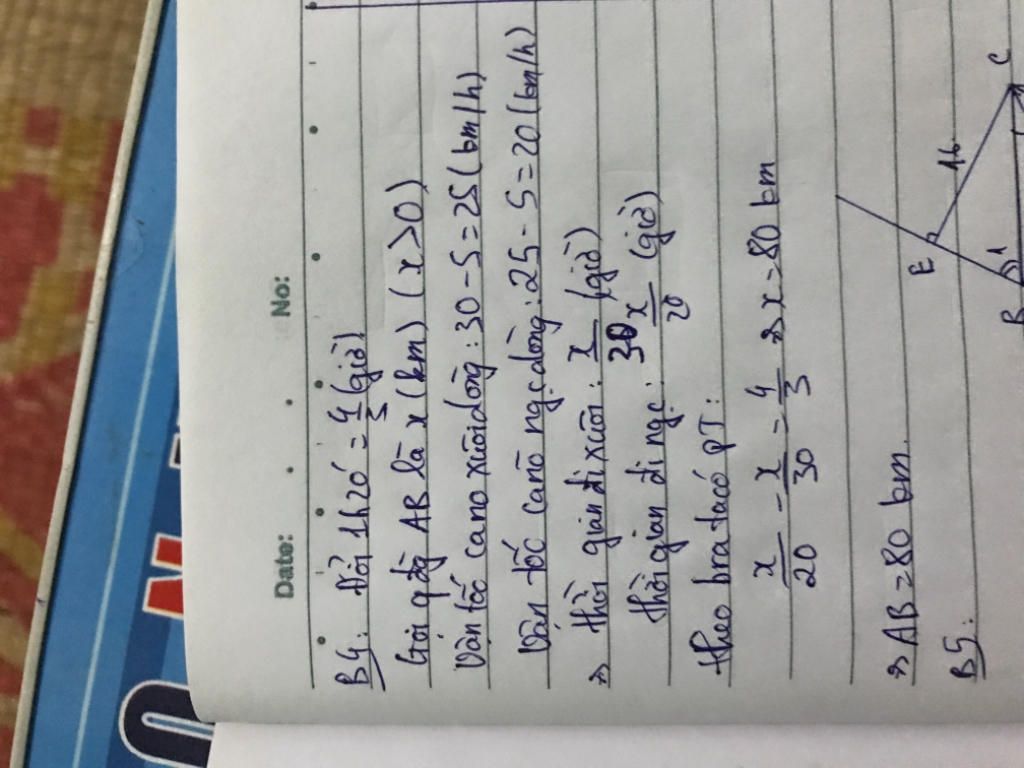 Date: No:
B4: Đổi 1h20' = 4/3 (giờ)
Gọi qđg AB là x (km) (x>0)
Vận tốc cano xuôi dòng: 30 - 5 = 25 (km/h)
Vận tốc cano ngc dòng: 25 - 5 = 20 (km/h)
=> thời gian đi xuôi: x/30 (giờ)
thời gian đi ngc: x/20 (giờ)
theo bra ta có PT:
x/20 - x/30 = 4/3 => x = 80 km
=> AB = 80 km.
B5:
E
16
C
B
1